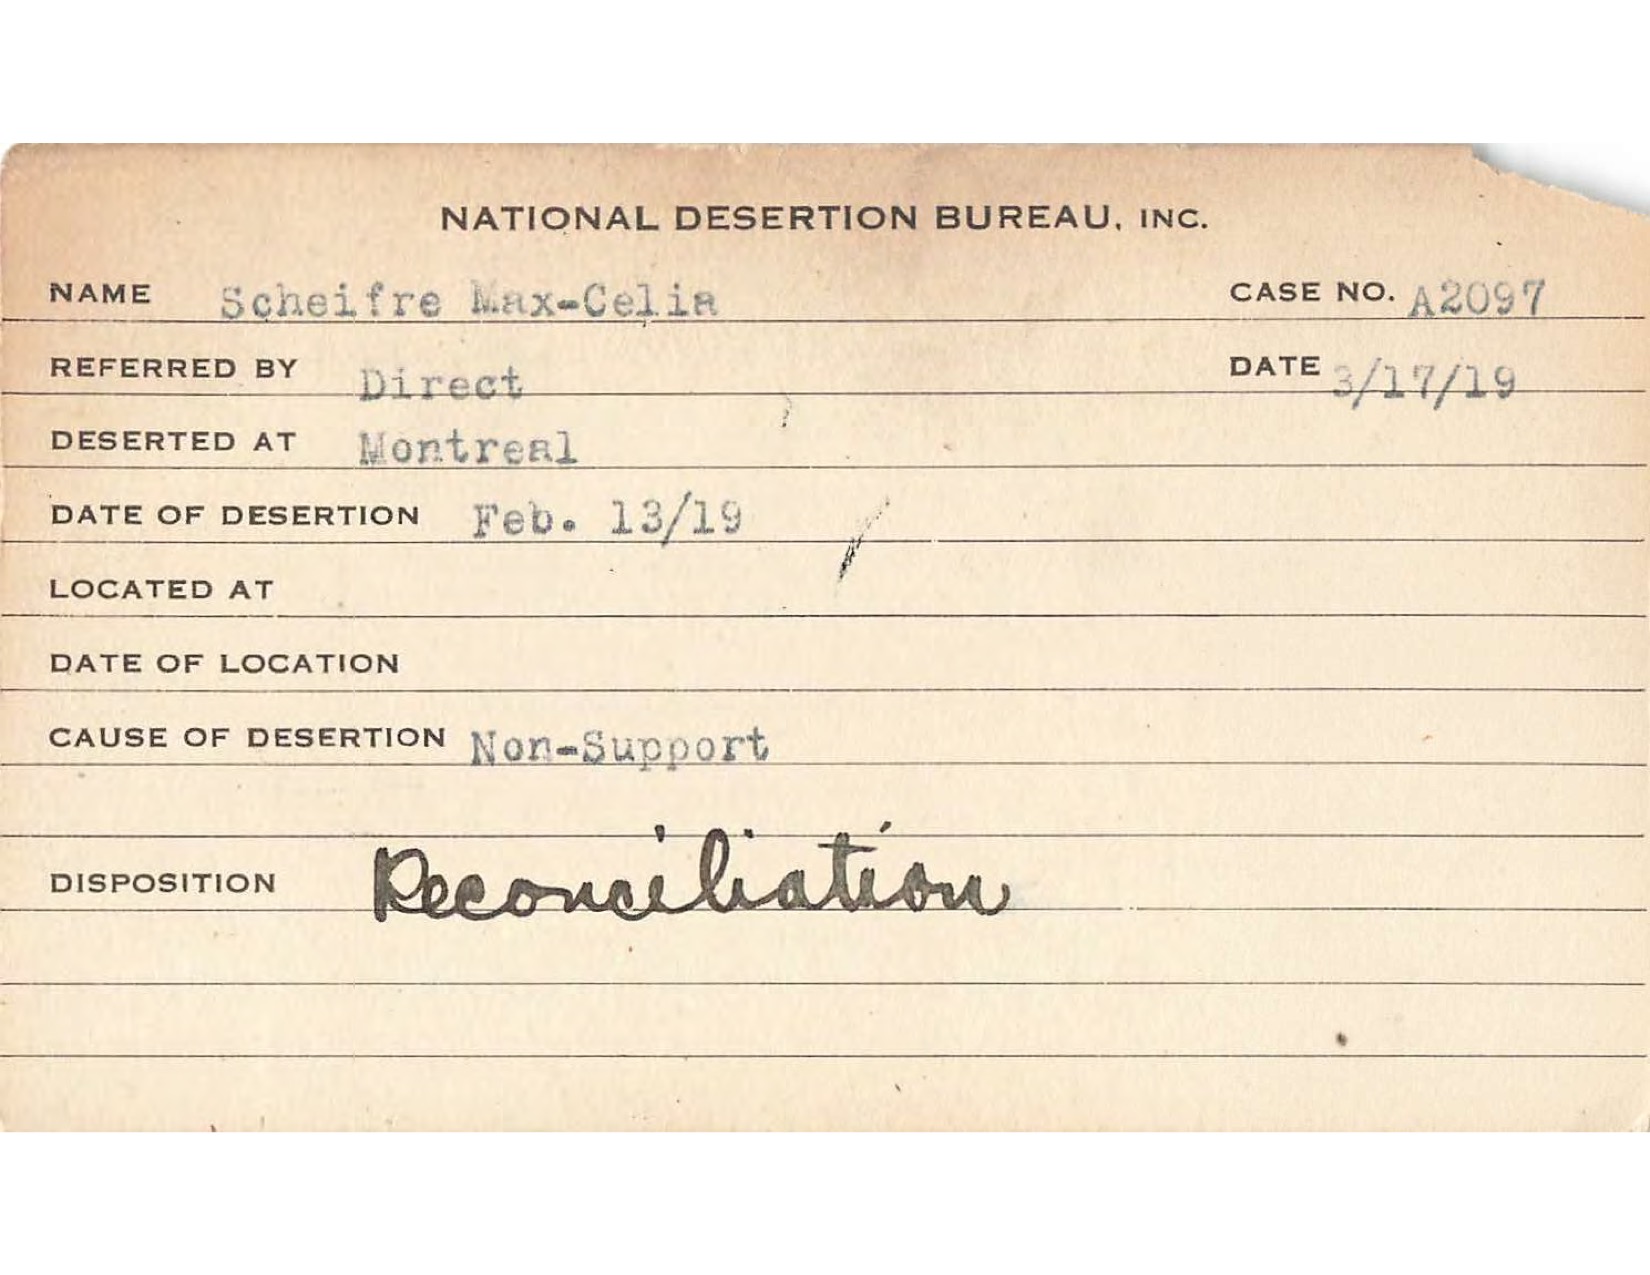 NATIONAL DESERTION BUREAU, INC.
NAME Scheifre Max-Celia CASE NO. A2097
REFERRED BY Direct DATE 3/17/19
DESERTED AT Montreal
DATE OF DESERTION Feb. 13/19
LOCATED AT
DATE OF LOCATION
CAUSE OF DESERTION Non-Support
DISPOSITION Reconciliation